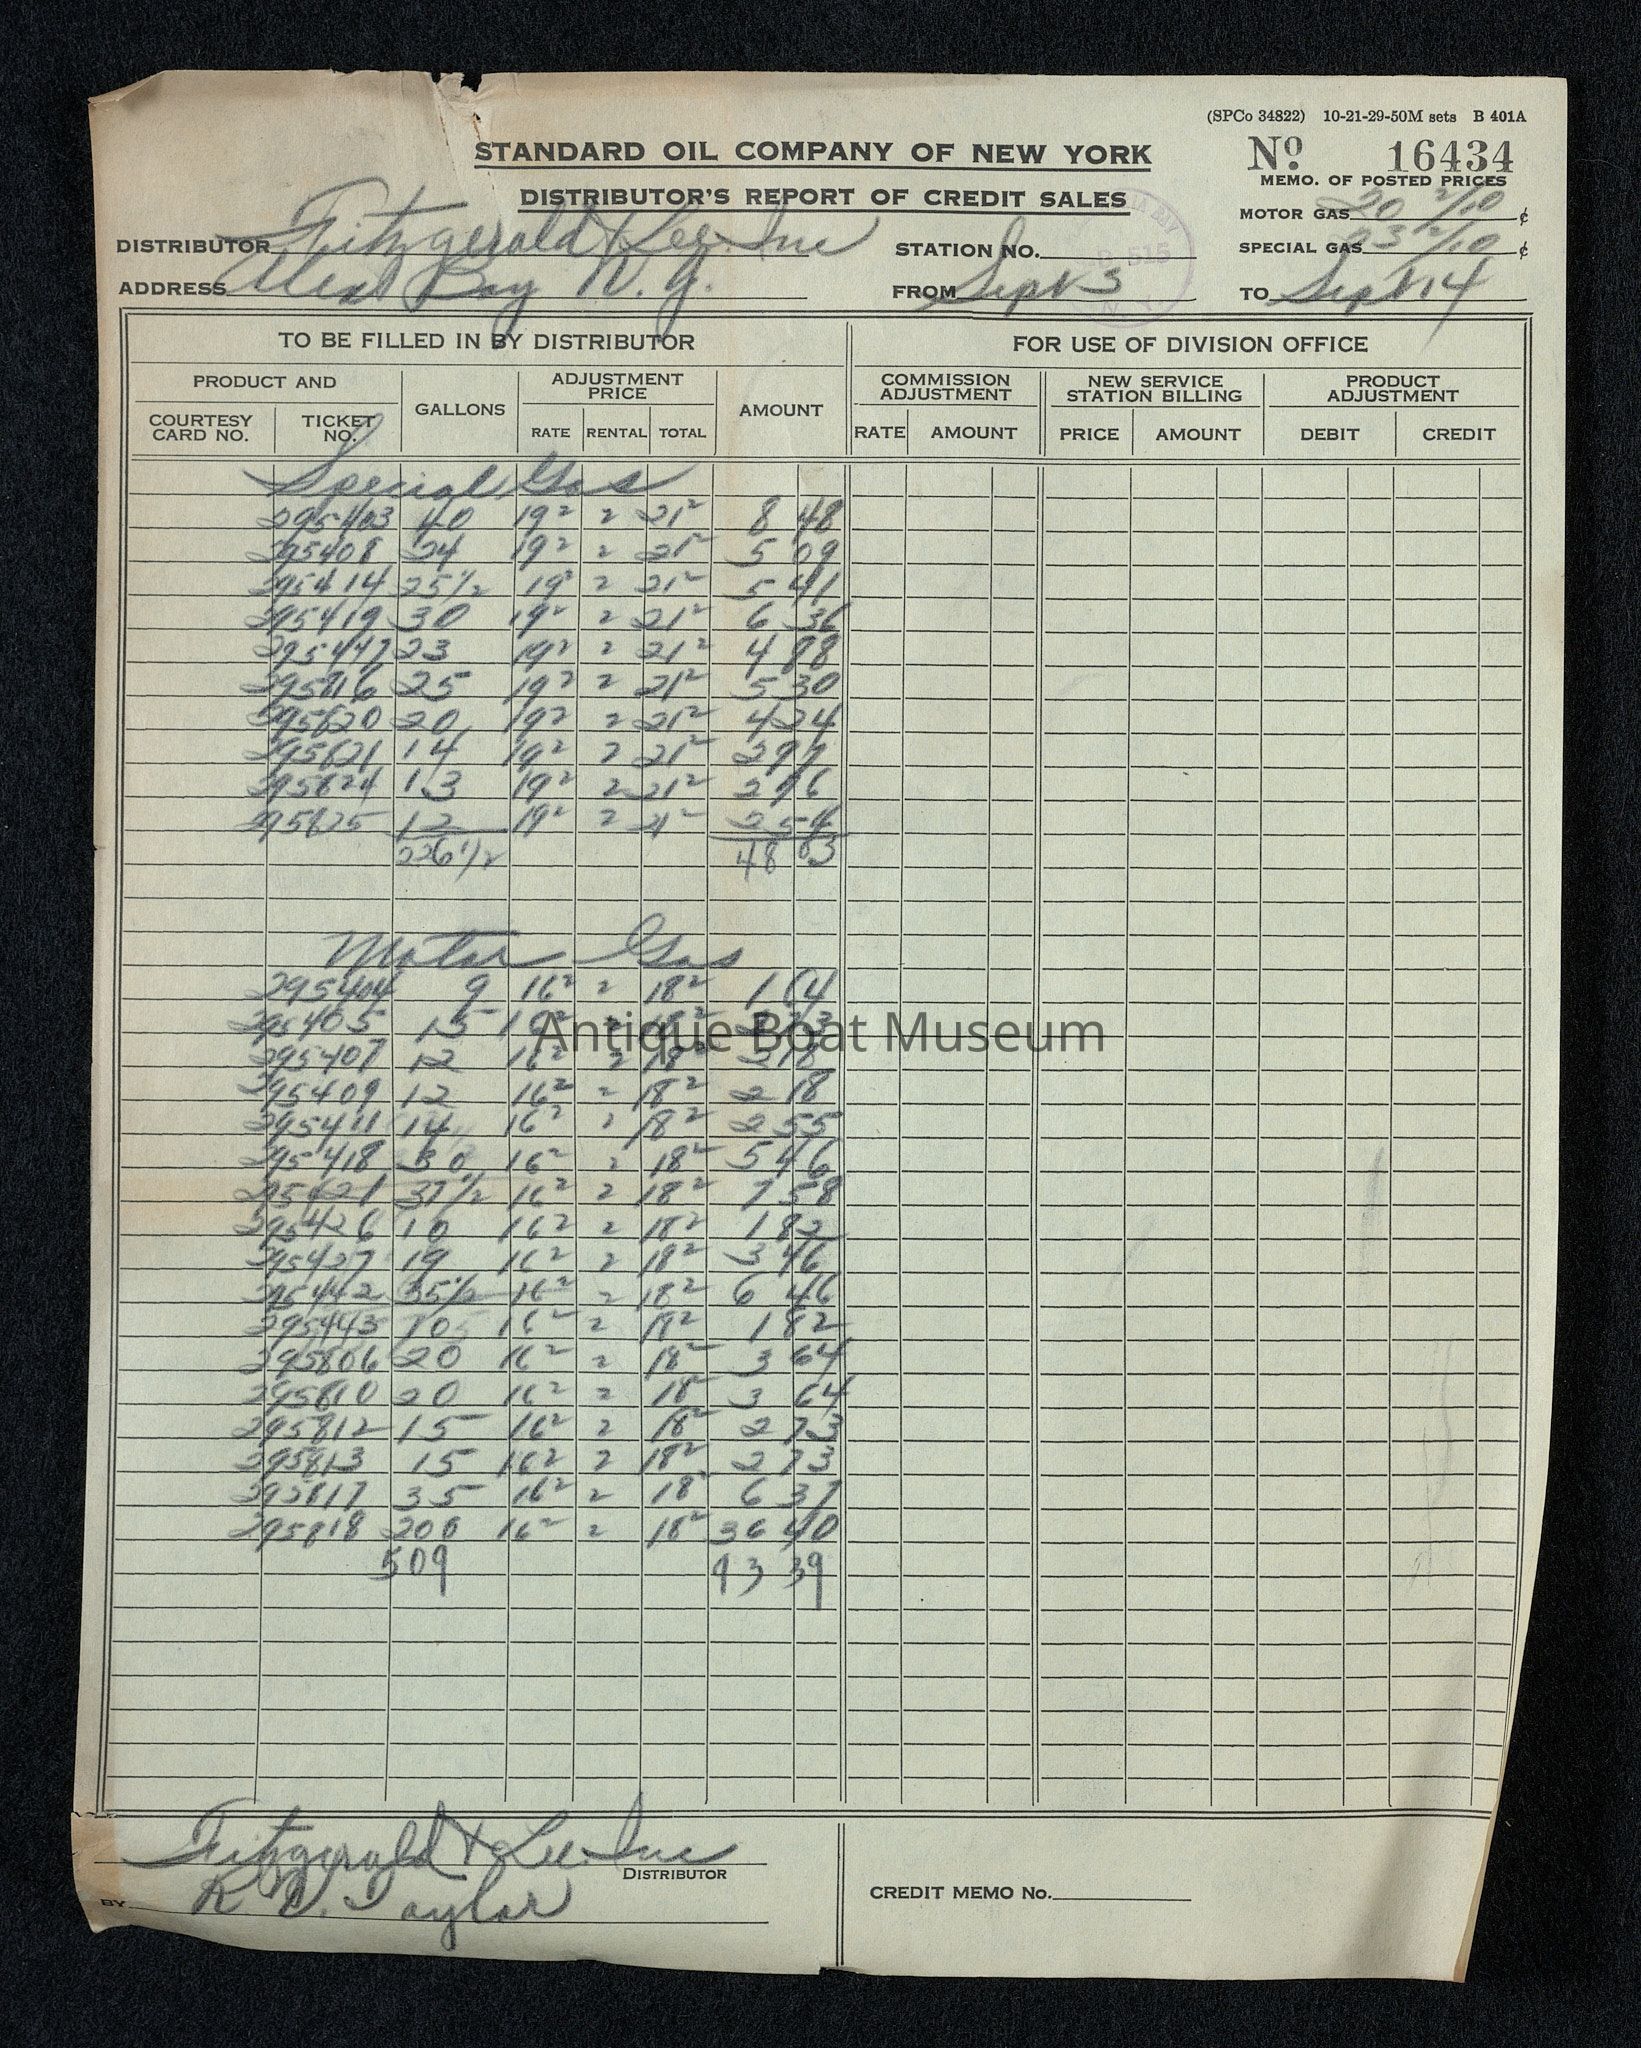 (SPCo 34822) 10-21-29-50M sets B 401A
STANDARD OIL COMPANY OF NEW YORK
No. 16434
DISTRIBUTOR'S REPORT OF CREDIT SALES
MEMO. OF POSTED PRICES
MOTOR GAS 20 2/10 ¢
DISTRIBUTOR Fitzgerald & Lee. Inc STATION NO. SPECIAL GAS 23 2/10 ¢
ADDRESS Alex Bay N. Y. FROM Sept 3 TO Sept 14
TO BE FILLED IN BY DISTRIBUTOR FOR USE OF DIVISION OFFICE
PRODUCT AND GALLONS ADJUSTMENT PRICE AMOUNT COMMISSION ADJUSTMENT NEW SERVICE STATION BILLING PRODUCT ADJUSTMENT
COURTESY CARD NO. TICKET NO. RATE RENTAL TOTAL RATE AMOUNT PRICE AMOUNT DEBIT CREDIT
Special Gas
295403 40 19² 2 21² 8 48
295408 24 19² 2 21² 5 09
295414 25½ 19² 2 21² 5 41
295419 30 19² 2 21² 6 36
295447 23 19² 2 21² 4 88
295816 25 19² 2 21² 5 30
295820 20 19² 2 21² 4 24
295821 14 19² 2 21² 2 97
295824 13 19² 2 21² 2 76
295825 12 19² 2 21² 2 54
226½ 48 03
Motor Gas
295404 9 16² 2 18² 1 64
295405 15 16² 2 18² 2 73
295407 12 16² 2 18² 2 18
295409 12 16² 2 18² 2 18
295411 14 16² 2 18² 2 55
295418 30 16² 2 18² 5 46
295421 37½ 16² 2 18² 7 58
295426 10 16² 2 18² 1 82
295427 19 16² 2 18² 3 46
295442 35½ 16² 2 18² 6 46
295443 10 16² 2 18² 1 82
295806 20 16² 2 18² 3 64
295810 20 16² 2 18² 3 64
295812 15 16² 2 18² 2 73
295813 15 16² 2 18² 2 73
295817 35 16² 2 18² 6 37
295818 200 16² 2 18² 36 40
509 93 39
Antique Boat Museum
Fitzgerald & Lee. Inc
DISTRIBUTOR
BY R. D. Taylor
CREDIT MEMO No.